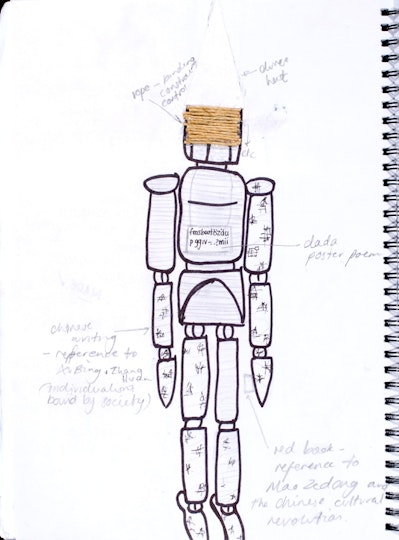 rope - binding
constraint
control
dunce
hat
fmsbwtözäu
pggiv-..?mü
dada
poster poem
chinese
writing
- reference to
Xu Bing + Zhang
Huan
(individualism
bound by society)
red book -
reference to
Mao Zedong and
the Chinese cultural
revolution.